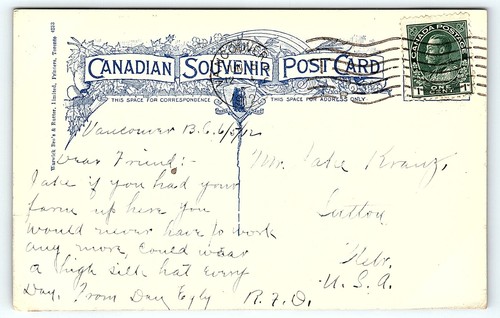 Warwick Bro's & Rutter, Limited, Printers, Toronto
CANADIAN SOUVENIR POST CARD
VANCOUVER
CANADA POSTAGE
1 ONE 1
THIS SPACE FOR CORRESPONDENCE
THIS SPACE FOR ADDRESS ONLY
Vancouver B.C. 6/5/12
Dear Friend:-
Jake if you had your
farm up here you
would never have to work
any more, Could wear
a high silk hat every
Day. From Dan Egly
Mr. Jake Kranz,
Sutton
Nebr.
U.S.A.
R.F.D.